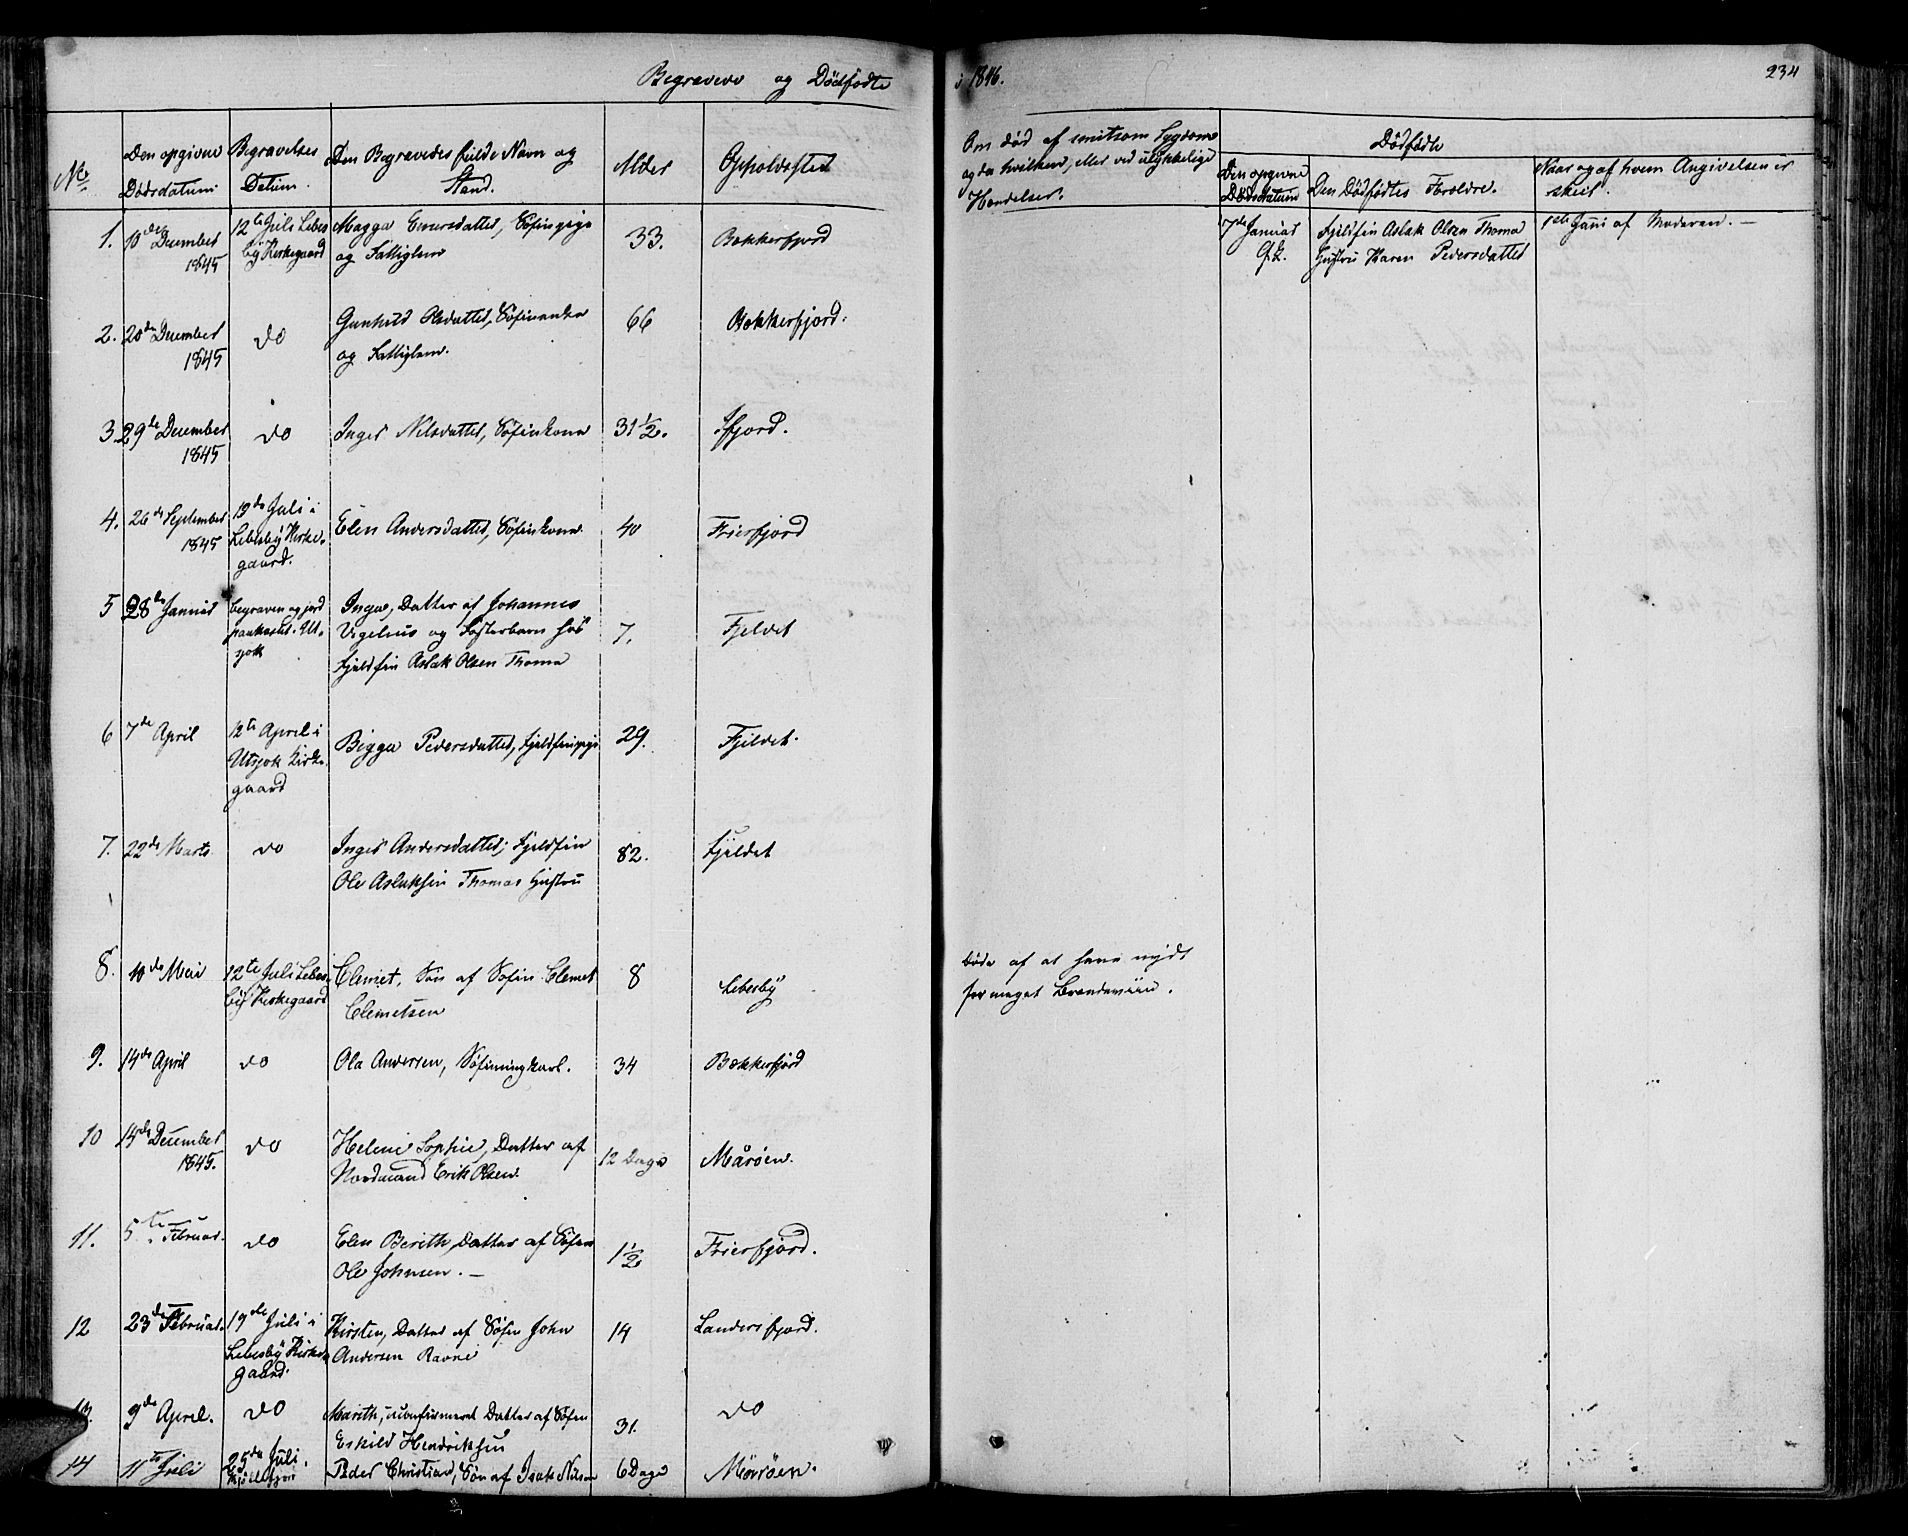 Begravede og Dödfödte
i 1846.
234
No
Den opgivne Dödsdatum.
Begravelses Datum.
Den Begravedes fulde Navn og Stand.
Alder
Opholdssted
Om död af smitsom Sygdom
og da hvilken, eller ved ulykkelige
Hændelser.
Dödfödte
Den opgivne Dödsdatum
Den Dödfödtes Forældre.
Naar og af hvem Angivelsen er
skeet.
1. 10de December
1845
12te Juli Lebes
by Kirkegaard
Magga Einersdatter, Söfinpige
og Fattiglem
33.
Bekkerfjord
7de Januar
Fjeldfin Aslak Olsen Thoma
Hustru Karen Pedersdatter
1ste Juni af Moderen. —
2. 20de December
1845
do
Gunhild Olsdatter, Söfinenke
og Fattiglem.
66
Bekkerfjord.
3. 29de December
1845
do
Inger Nilsdatter, Söfinkone
31 1/2.
Ifjord.
4. 26de September
1845
19de Juli i
Lebesby Kirke-
gaard.
Elen Andersdatter, Söfinkone
40
Frierfjord
5 28de Januar
begraven og jord
paakastet i Ut-
sjok
Inga, Datter af Johannes
Vigelius og Fosterbarn hos
Fjeldfin Aslak Olsen Thoma
7.
Fjeldet
6 7de April
12te April i
Utsjok Kirke-
gaard
Bigga Pedersdatter, Fjeldfinpige
29.
Fjeldet.
7. 22de Marts
do
Inger Andersdatter, Fjeldfin
Ole Aslaksen Thomas Hustru
82.
Fjeldet
8. 10de Mai
12te Juli Lebes-
by Kirkegaard
Clemet, Sön af Söfin Clemet
Clemetsen
8
Lebesby
döde af at have nydt
for meget Brændeviin.
9. 14de April
do
Ola Andersen, Söfinungkarl.
34
Bekkerfjord
10 14de December
1845.
do
Helene Sophie, Datter af
Nordmand Erik Olsen.
12 Dage
Måröen.
11. 5te Februar.
do
Elen Berith, Datter af Söfin
Ole Johnsen. —
1 1/2
Frierfjord.
12 23de Februar.
19de Juli i
Lebesby Kirke-
gaard.
Kirsten, Datter af Söfin John
Andersen Ravne
14
Landersfjord.
13. 9de April.
do
Marith, uconfirmeret Datter af Söfin
Eskild Hendriksen
31.
do
14 11te Juli
25de Juli i
Kjöllefjord
Peder Christian, Sön af Isak Nilsen
6 Dage
Måröen.